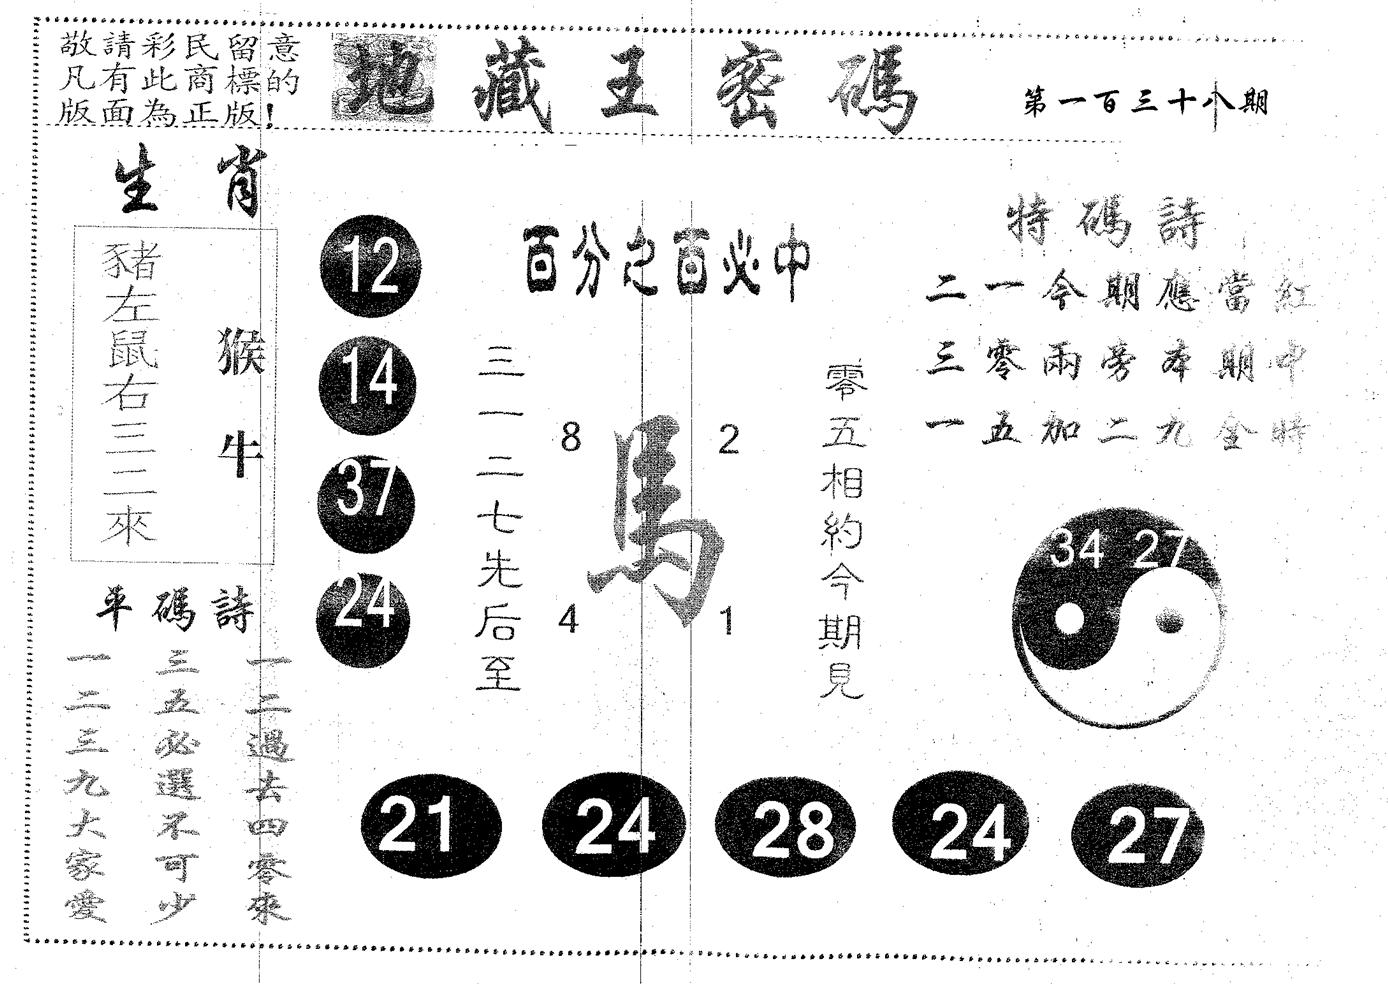 敬請彩民留意
凡有此商標的
版面為正版!
地藏王密碼
第一百三十八期
生肖
豬左鼠右三二來
猴牛
12
14
37
24
百分之百必中
三一二七先后至
8
2
馬
4
1
零五相約今期見
特碼詩
二一今期應當紅
三零兩旁本期中
一五加二九金特
34 27
平碼詩
一二過去四零來
三五必選不可少
一二三九大家愛
21
24
28
24
27